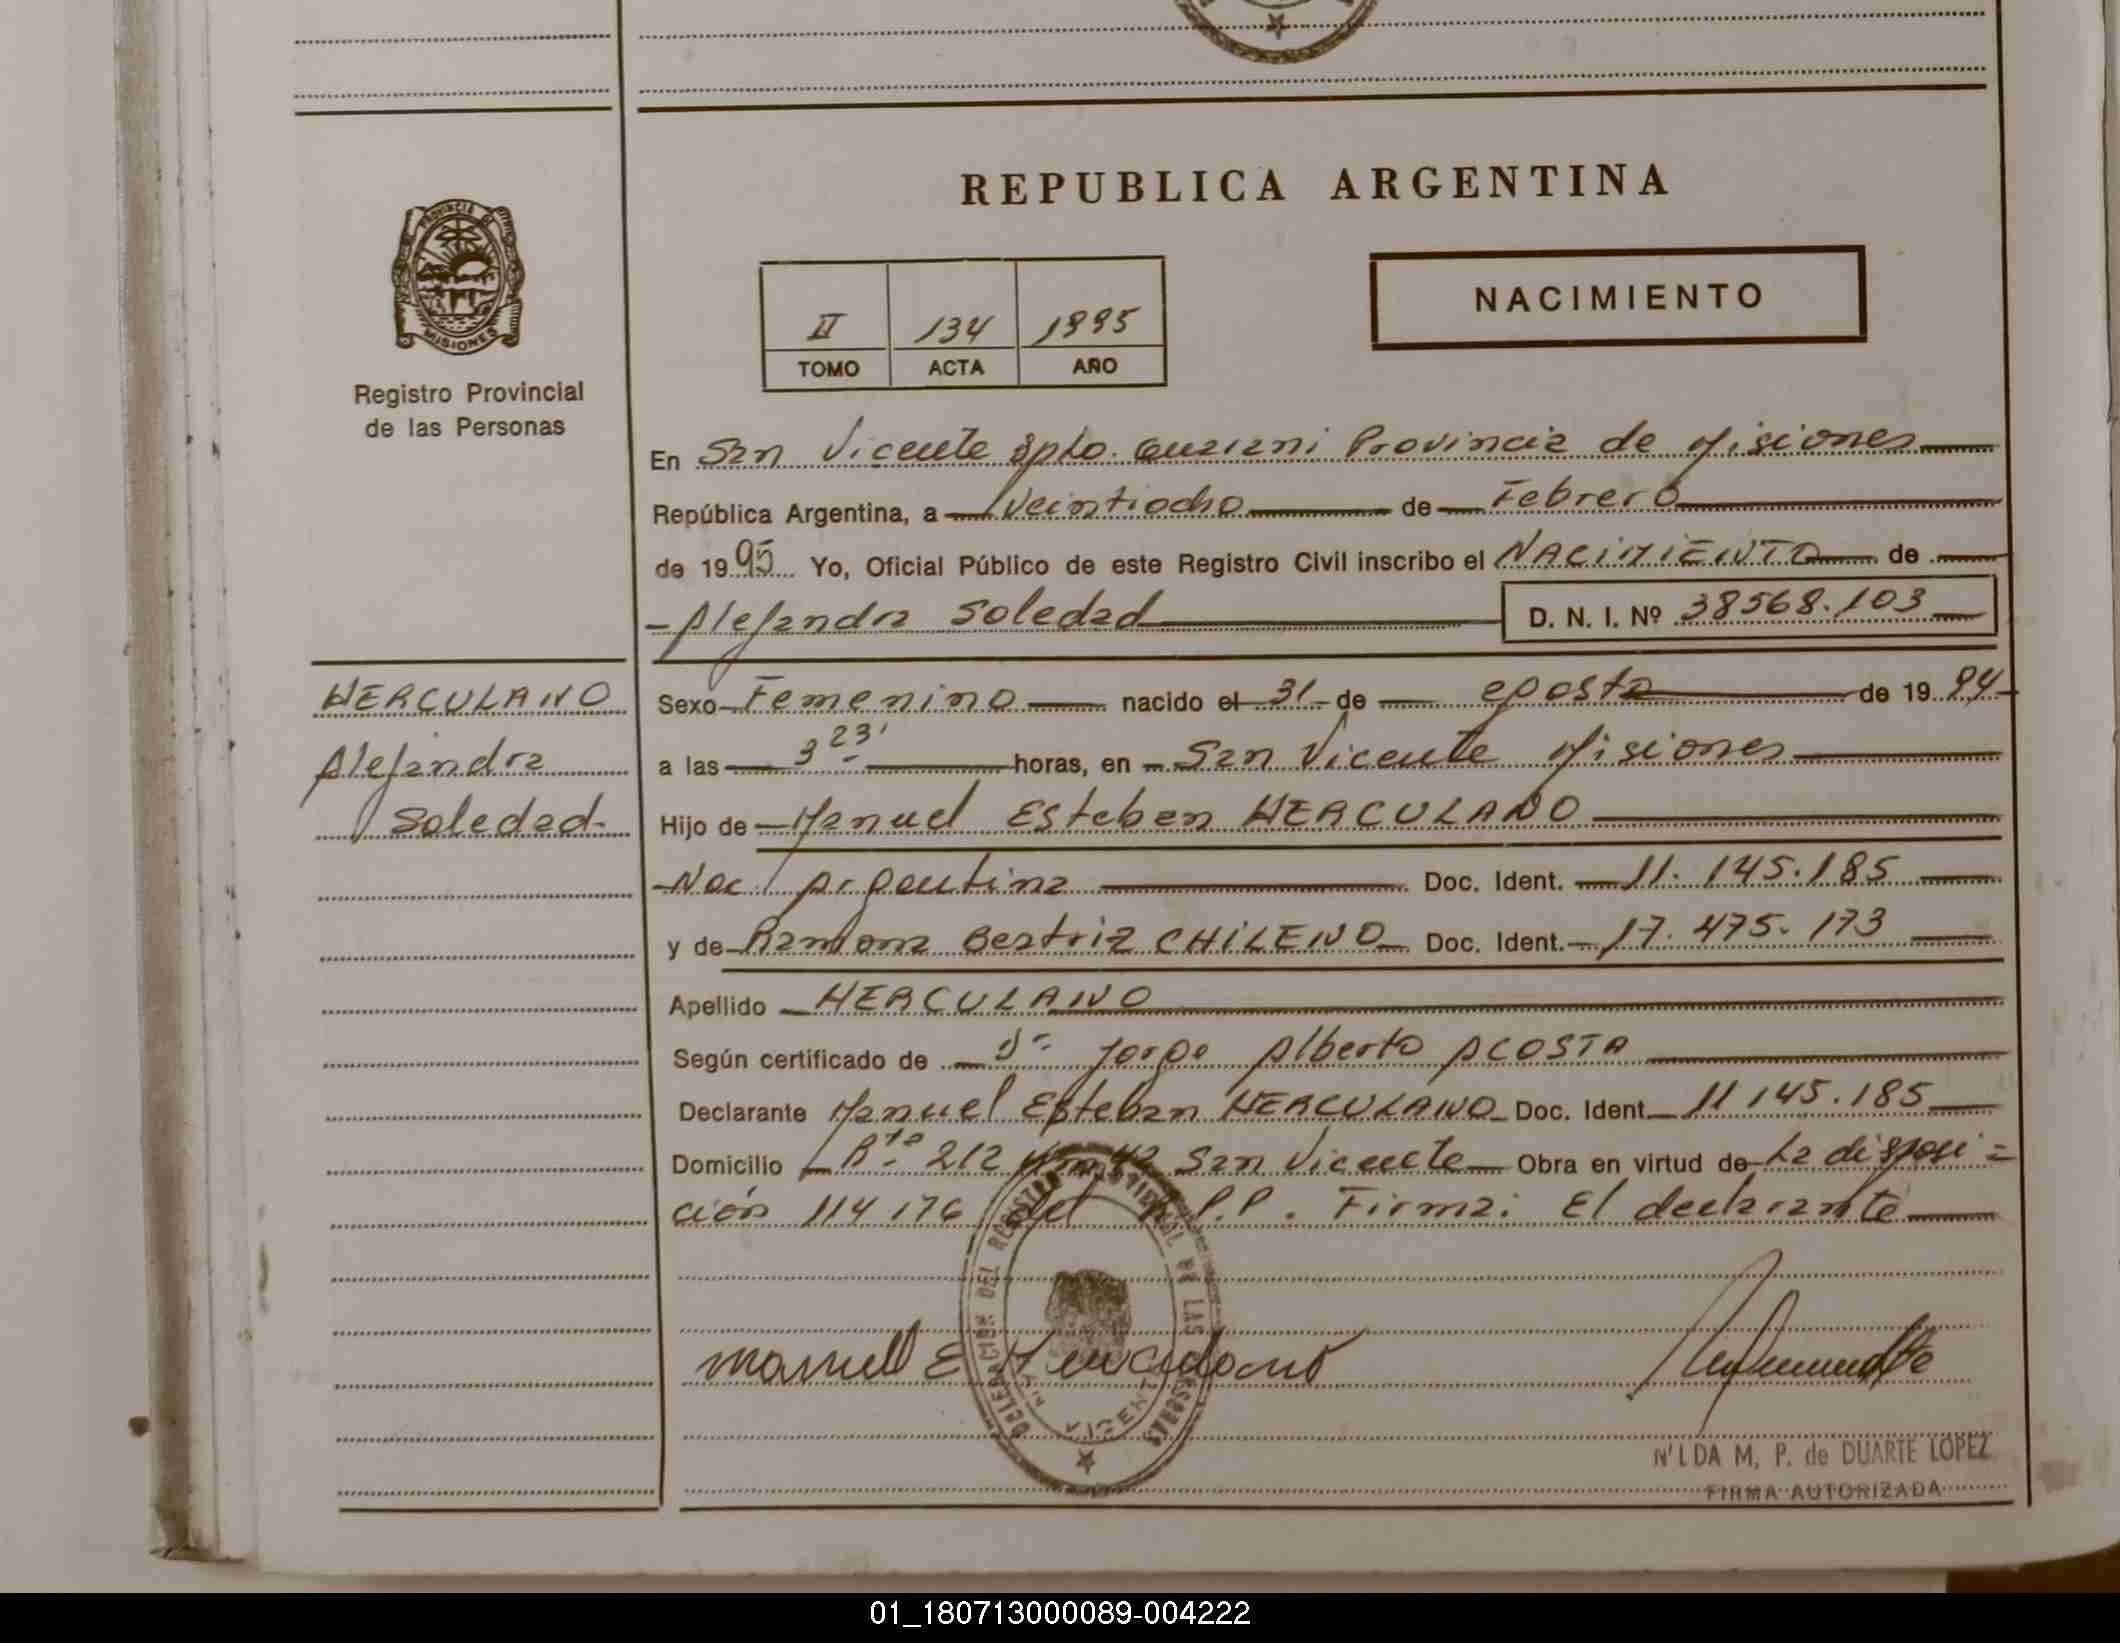 REPUBLICA ARGENTINA
PROVINCIA DE MISIONES
Registro Provincial
de las Personas
II 134 1995
TOMO ACTA AÑO
NACIMIENTO
En San Vicente Dpto. Guarani Provincia de Misiones
República Argentina, a Veintiocho de Febrero
de 1995 Yo, Oficial Público de este Registro Civil inscribo el NACIMIENTO de
Alejandra Soledad D. N. I. Nº 38568.103
HERCULANO
Alejandra
Soledad
Sexo Femenino nacido el 31 de agosto de 1994
a las 3 23' horas, en San Vicente Misiones
Hijo de Manuel Esteban HERCULANO
Nac. Argentina Doc. Ident. 11.145.185
y de Ramona Beatriz CHILENO Doc. Ident. 17.475.173
Apellido HERCULANO
Según certificado de Dr. Jorge Alberto ACOSTA
Declarante Manuel Esteban HERCULANO Doc. Ident 11145.185
Domicilio Rta 212 San Vicente Obra en virtud de La disposi=
ción 114176 del R.P.P. Firma: El declarante
Manuel E Herculano
DELEGACIÓN DEL REGISTRO PROVINCIAL DE LAS PERSONAS
VICENTE
NILDA M, P. de DUARTE LOPEZ
FIRMA AUTORIZADA
01_180713000089-004222